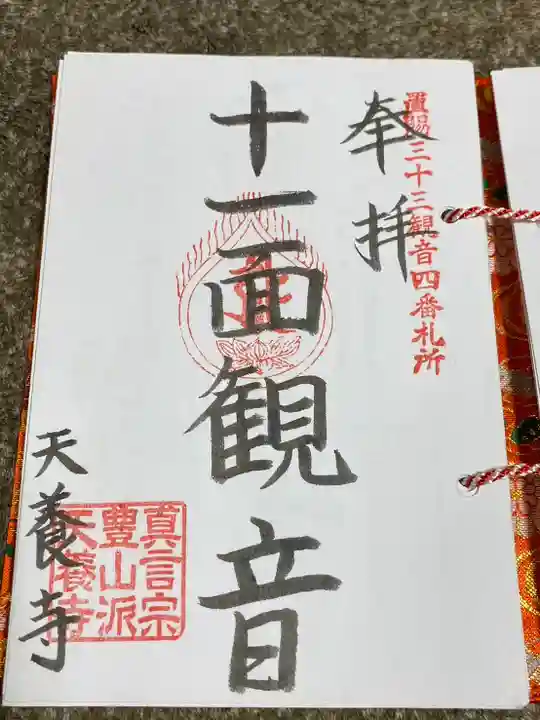 置賜三十三観音四番札所
奉拝
十一面観音
天養寺
真言宗
豊山派
天養寺